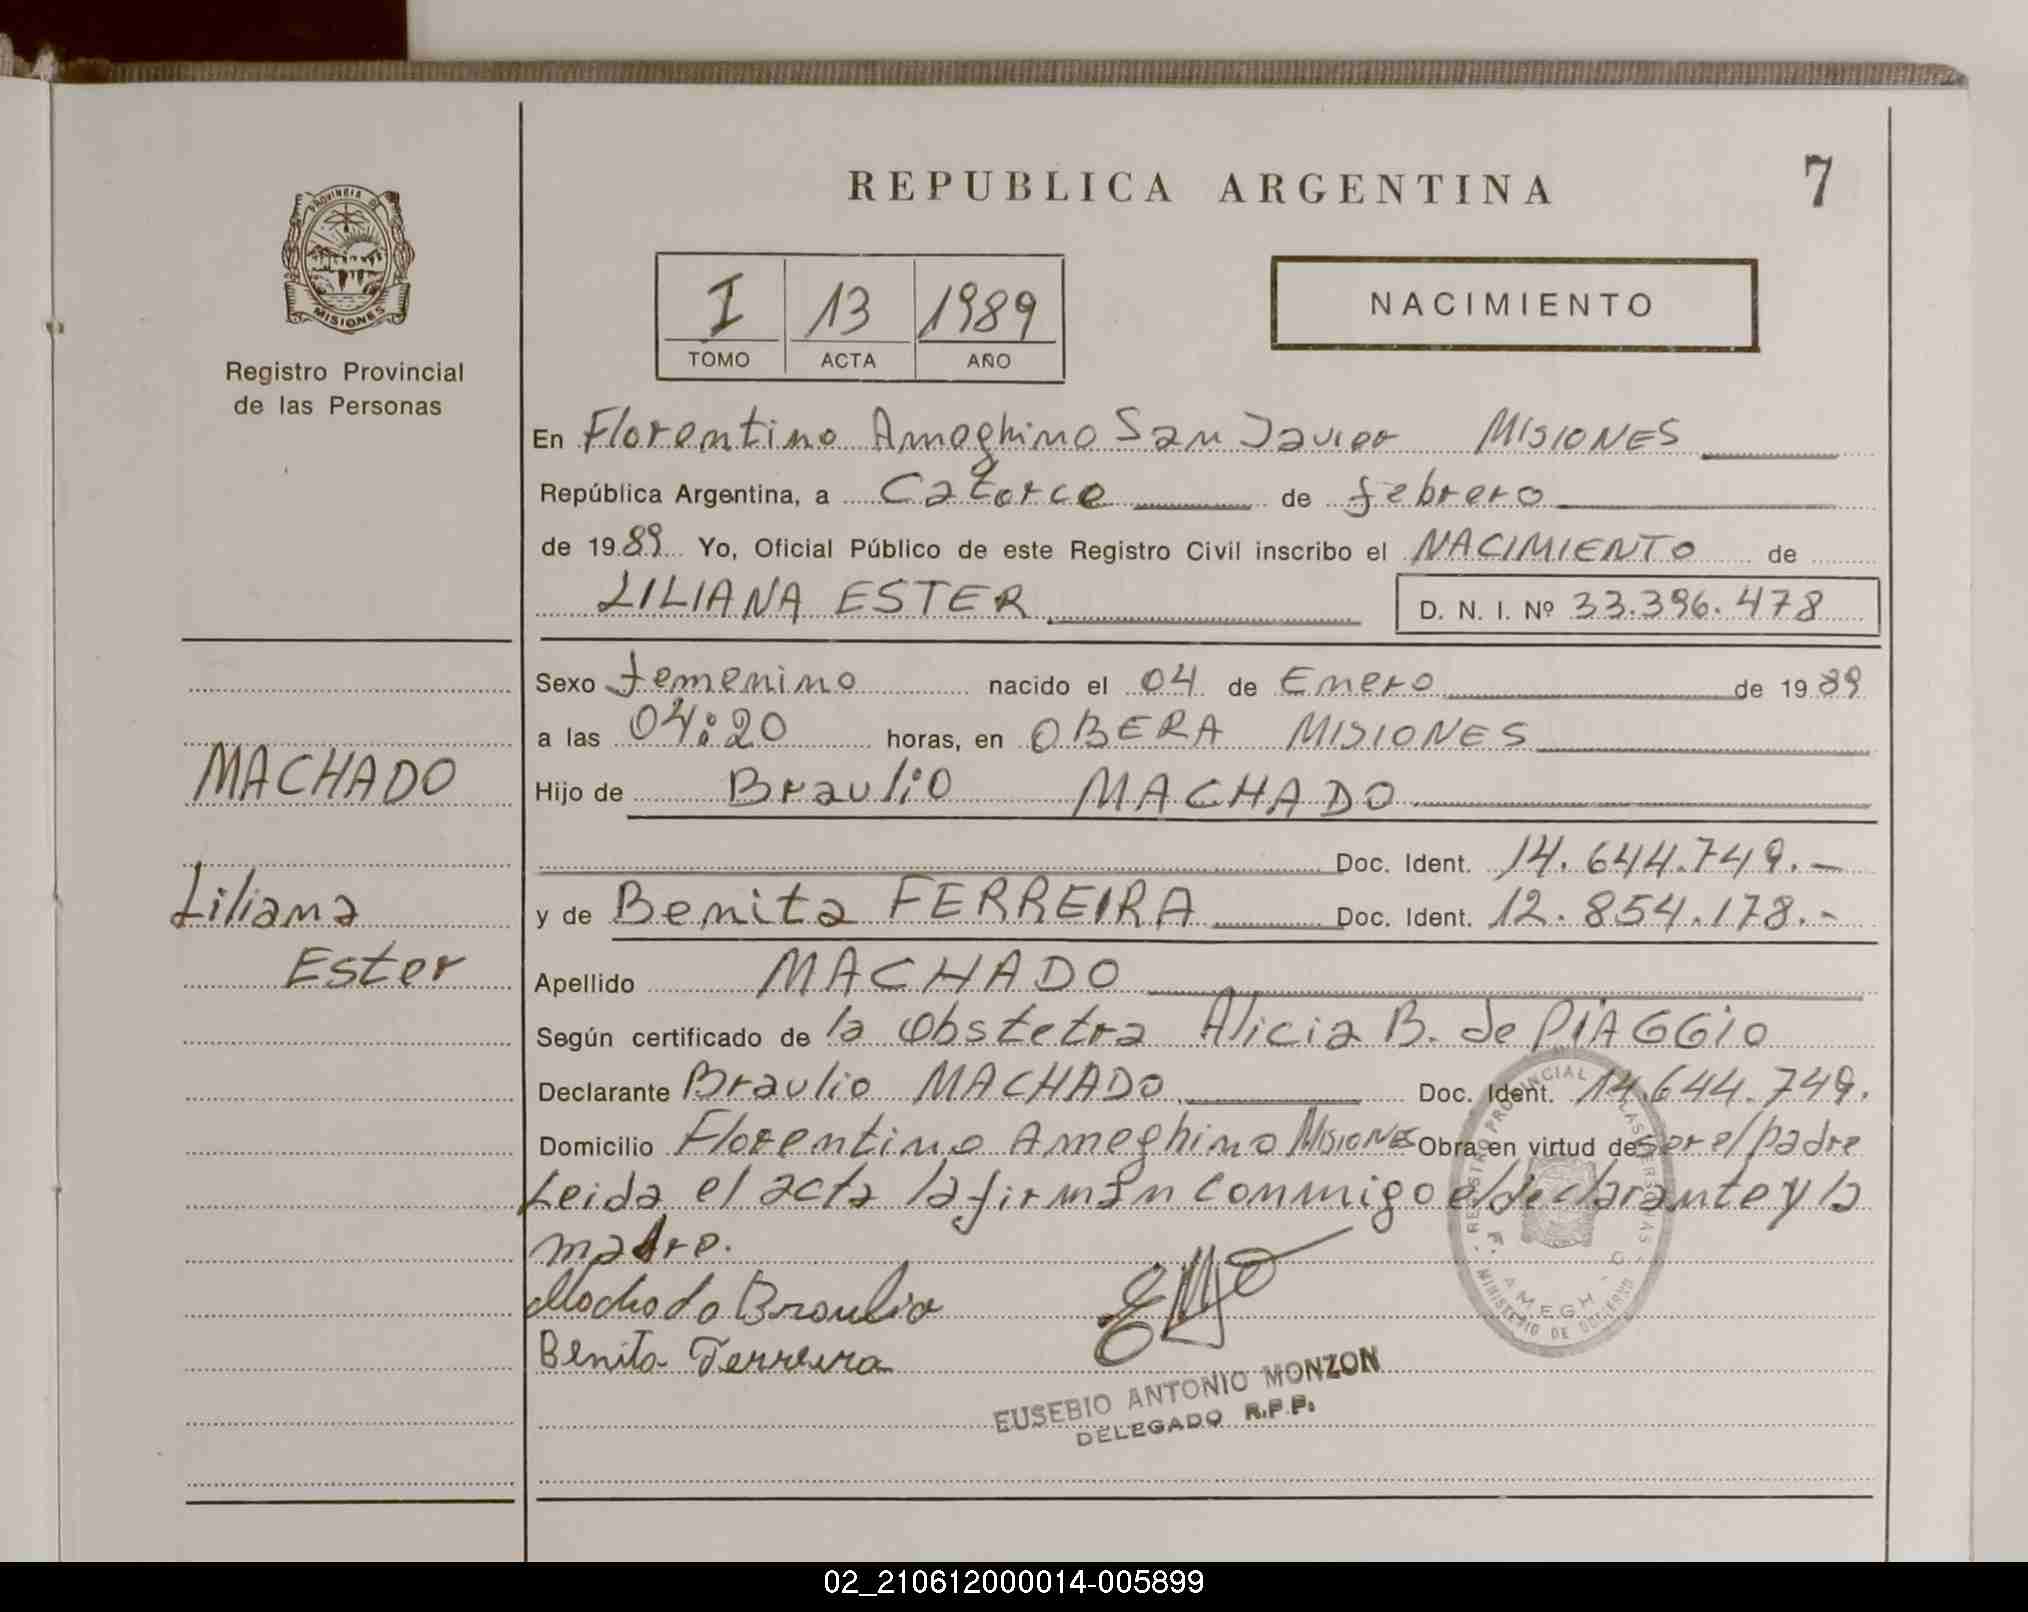 PROVINCIA DE
MISIONES
Registro Provincial
de las Personas
MACHADO
Liliana
Ester
REPUBLICA ARGENTINA
7
I 13 1989
TOMO ACTA AÑO
NACIMIENTO
En Florentino Ameghino San Javier MISIONES
República Argentina, a Catorce de febrero
de 1989 Yo, Oficial Público de este Registro Civil inscribo el NACIMIENTO de
LILIANA ESTER D. N. I. Nº 33.396.478
Sexo femenino nacido el 04 de Enero de 1989
a las 04:20 horas, en OBERA MISIONES
Hijo de Braulio MACHADO
Doc. Ident. 14.644.749.-
y de Benita FERREIRA Doc. Ident. 12.854.178.-
Apellido MACHADO
Según certificado de la Obstetra Alicia B. de PIAGGIO
Declarante Braulio MACHADO Doc. Ident. 14.644.749.
Domicilio Florentino Ameghino MISIONES Obra en virtud de ser el padre
Leida el acta la firman conmigo el declarante y la
madre.
Machado Braulio
Benita Ferreira
EUSEBIO ANTONIO MONZON
DELEGADO R.P.P.
REGISTRO PROVINCIAL DE LAS PERSONAS
MINISTERIO DE GOBIERNO
02_210612000014-005899